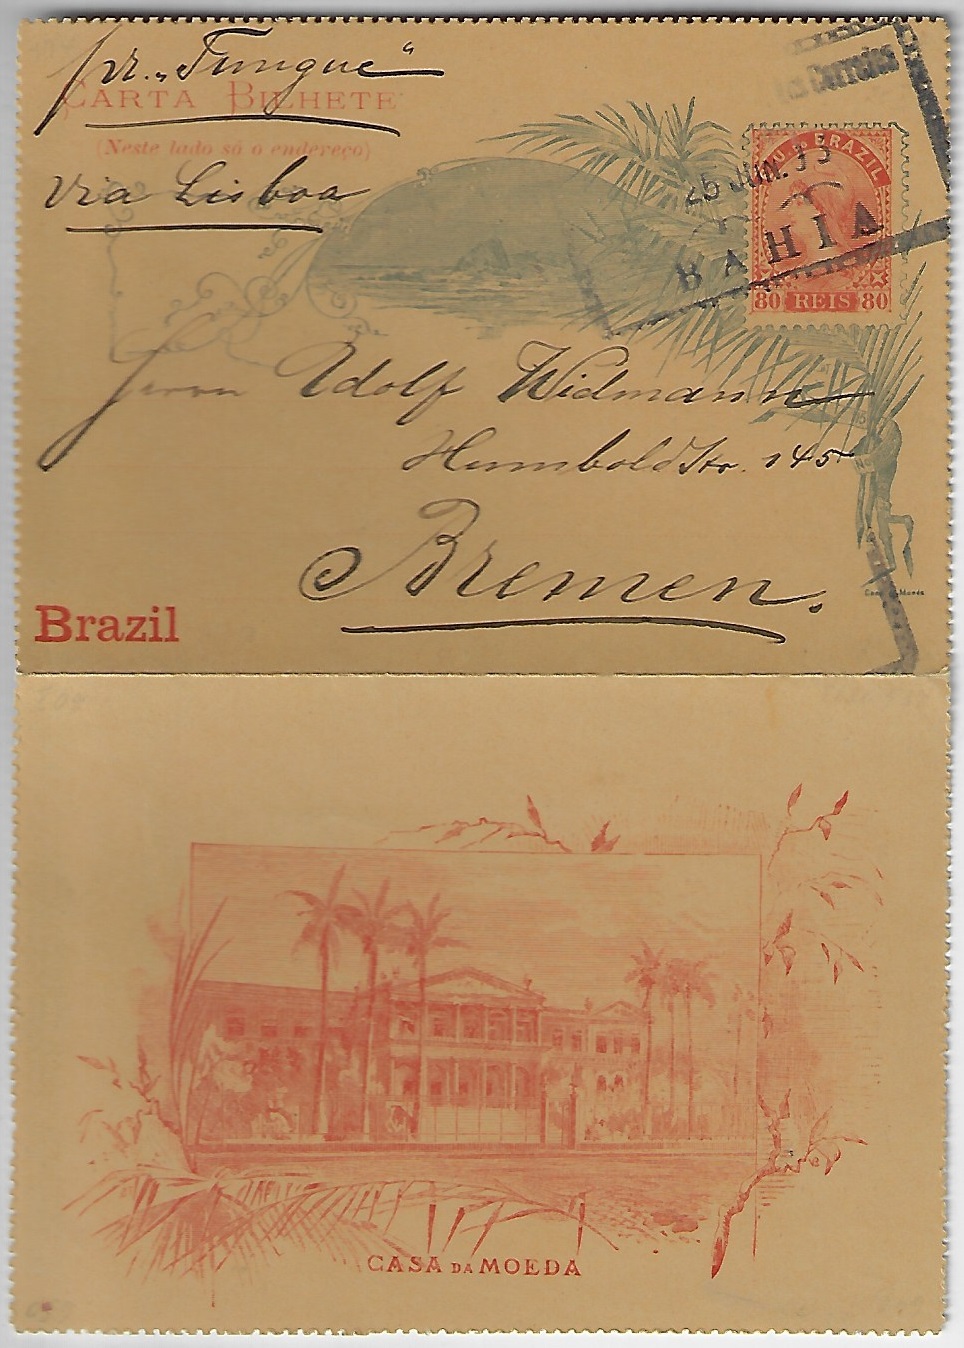 pr. „Tungue“
CARTA BILHETE
(Neste lado só o endereço)
via Lisboa
Correios
25 JUN. 93
BAHIA
BRAZIL
80 REIS 80
Herrn Adolf Widmann
Humboldtstr. 145
Bremen.
Brazil
CASA DA MOEDA